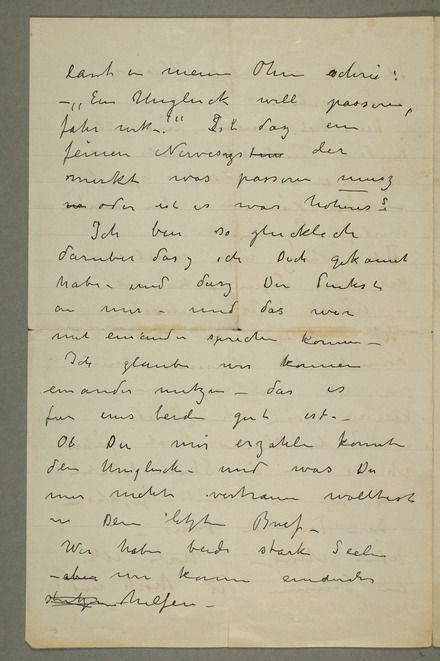 laut in meine Ohre schrie:
– „Ein Unglück will passieren,
fahr nicht –!" Ist das ein
feines Nervesystem der
merkt was passieren musz
oder ist es was höheres?
Ich bin so glucklich
daruber dasz ich Dich gekannt
habe – und dasz Du denkst
an mir – und das wir
mit einander sprechen konnen –
Ich glaube wir konnen
einander nutzen – das ist
fur uns beide gut ist –
Ob Du mir erzahlen konnte
den Ungluck – und was Du
mir nicht vertrauen wolltest
in Dein letzten Brief –
Wir haben beide starke Seelen
– aber wir konnen einander
helfen –